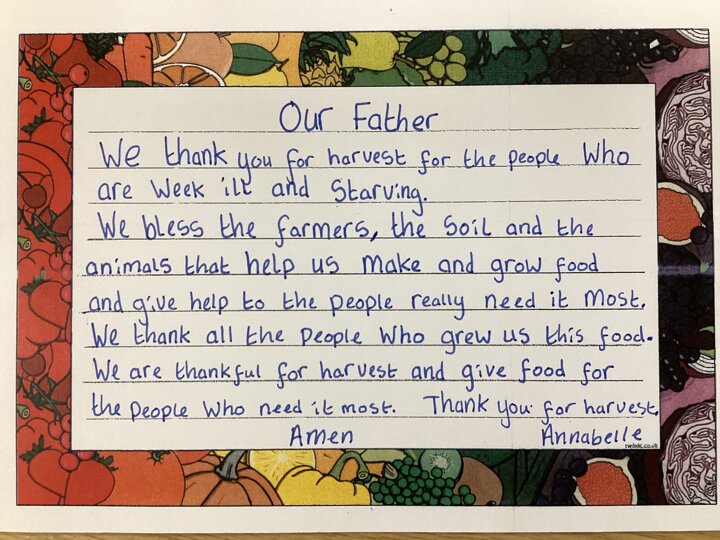 Our Father
We thank you for harvest for the people Who
are Week ill and Starving.
We bless the farmers, the Soil and the
animals that help us make and grow food
and give help to the people really need it most.
We thank all the people Who grew us this food.
We are thankful for harvest and give food for
the people Who need it most. Thank you for harvest.
Amen Annabelle
twinkl.co.uk